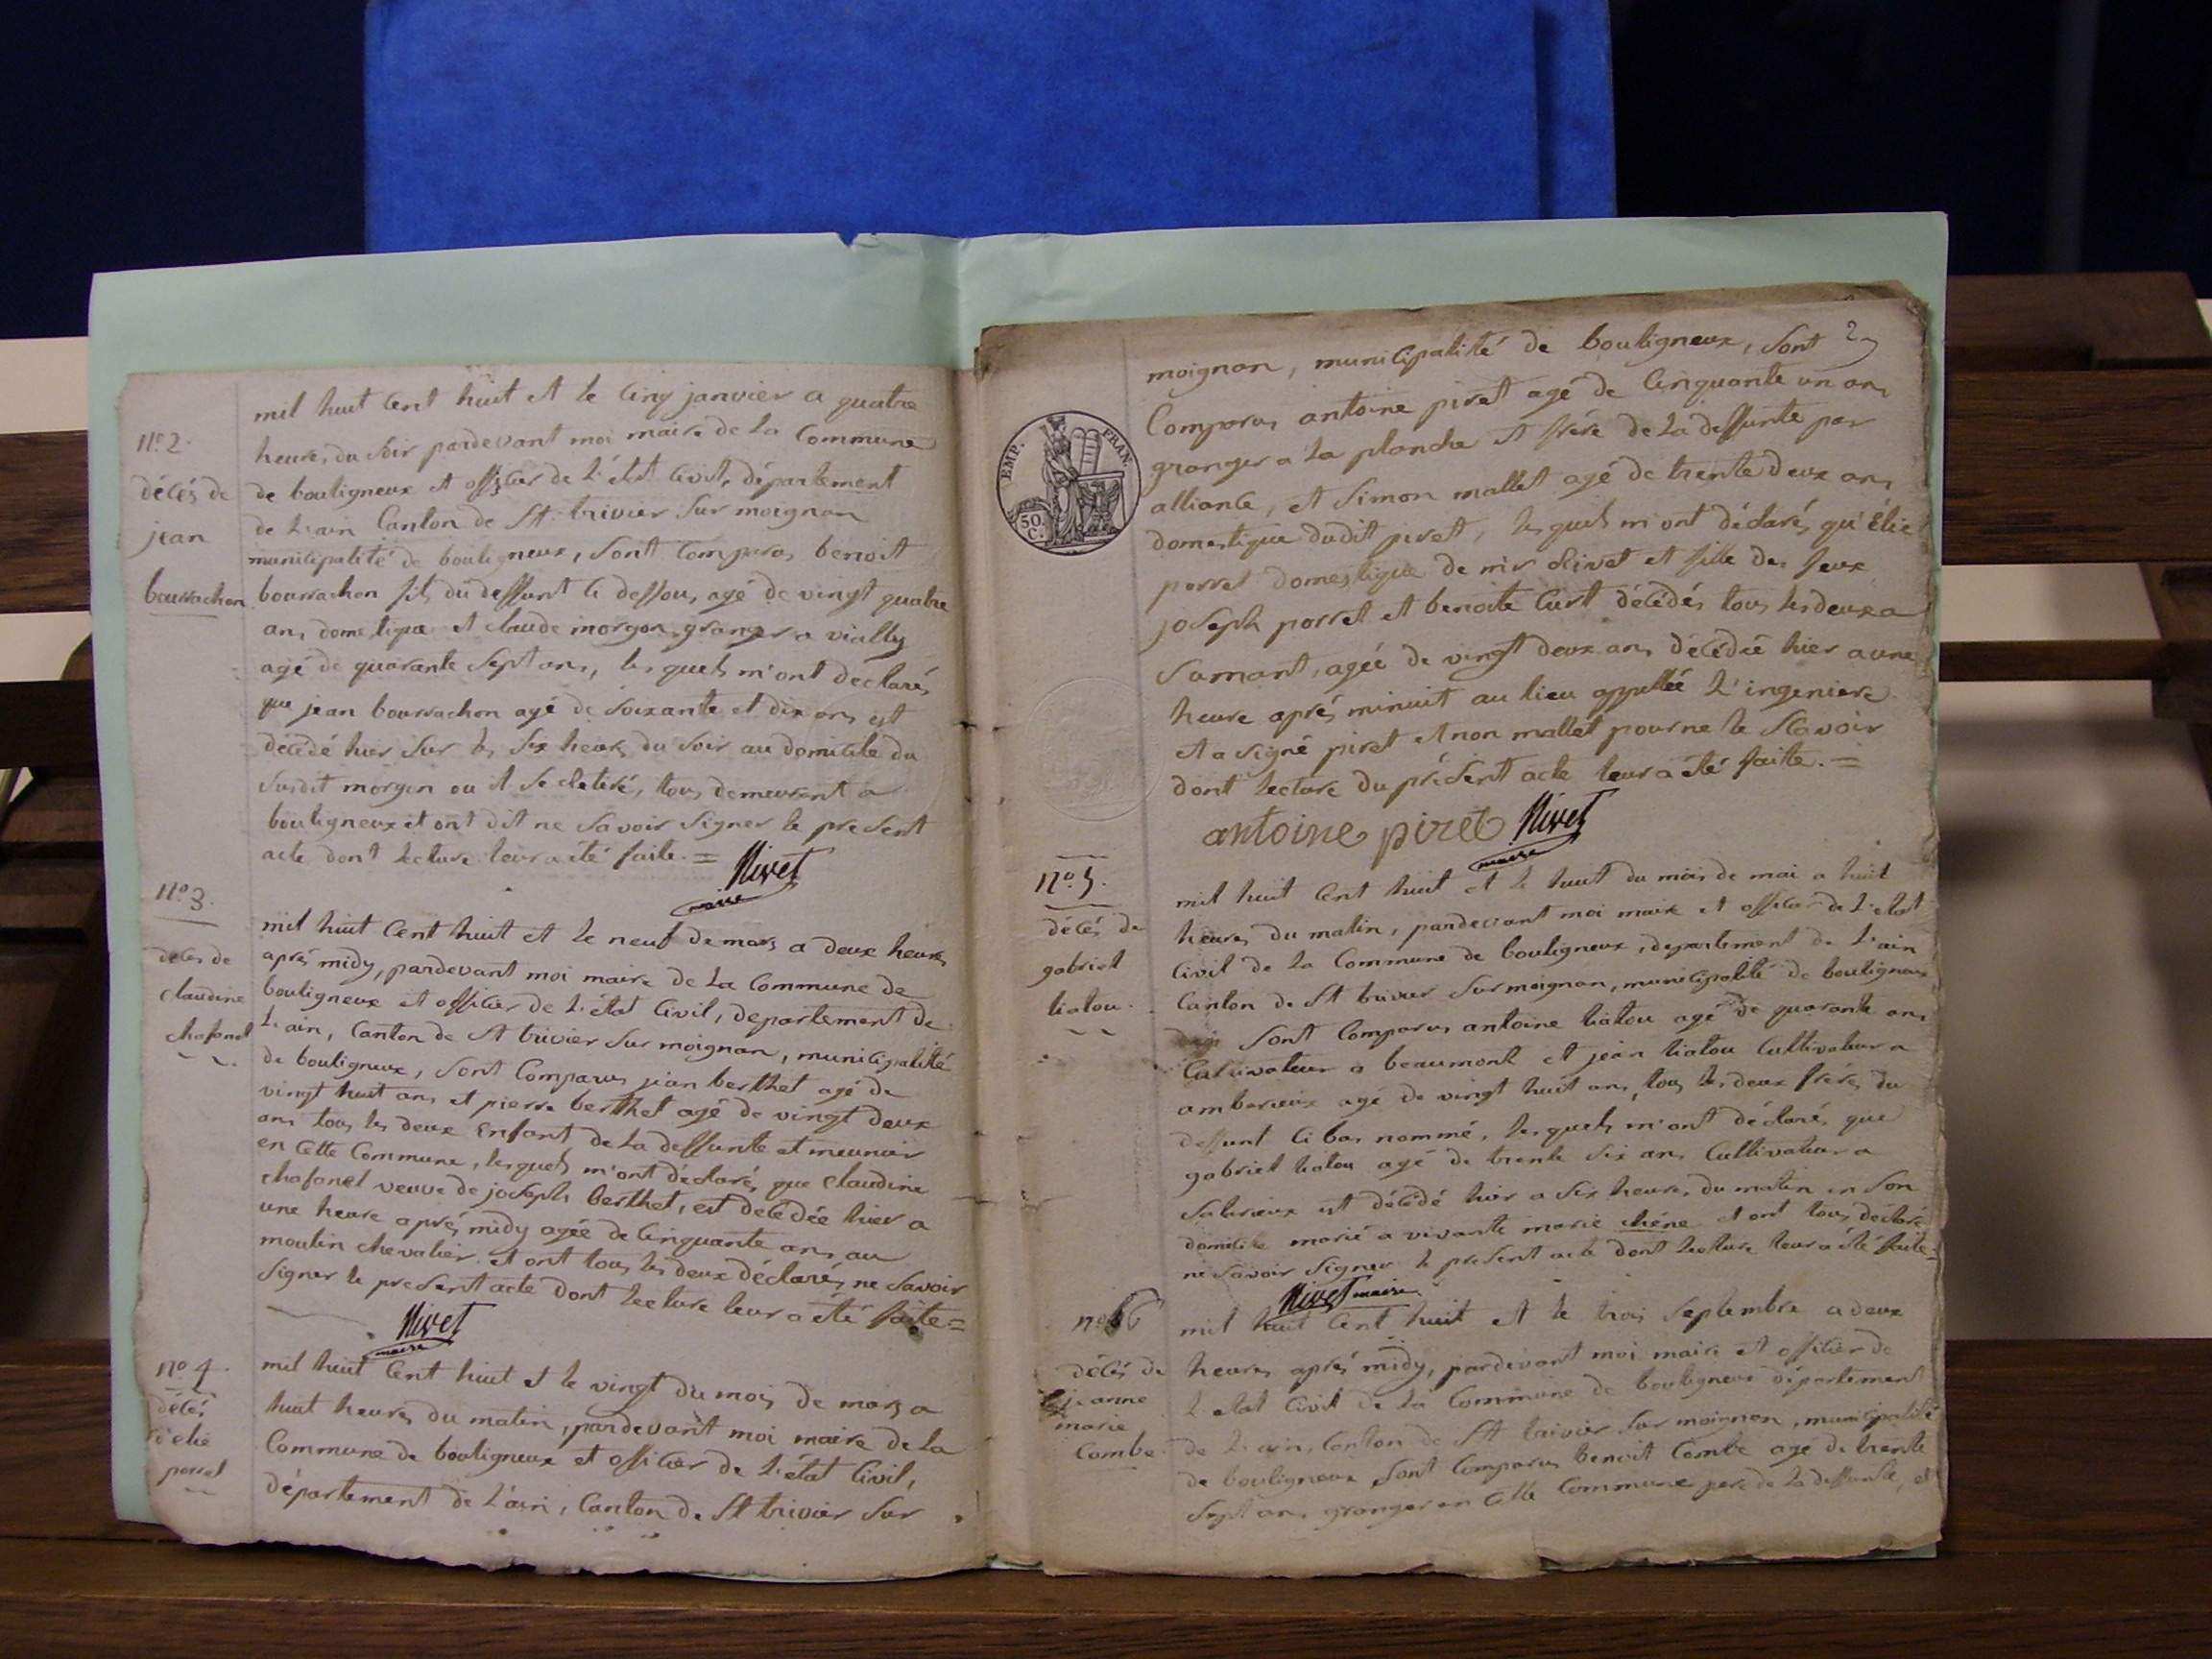 n.º 2.
décés de
jean
bourrachon
mil huit cent huit et le cinq janvier a quatre
heures du soir pardevant moi maire de la Commune
de bouligneux et officier de l'état civil, département
de l'ain Canton de St. trivier sur moignan
municipalité de bouligneux, sont comparus benoit
bourrachon fils du deffunt ci dessous, agé de vingt quatre
ans domestique et claude morgon granger a vially
agé de quarante sept ans, les quels m'ont déclarés
que jean bourrachon agé de soixante et dix ans est
décédé hier sur les six heures du soir au domicile du
susdit morgon ou il tous demeurant a
bouligneux et ont dit ne savoir signer le present
acte dont lecture leur a été faite. =
Nivet
maire
n.º 3.
décés de
claudine
chafanel
mil huit cent huit et le neuf de mars a deux heures
aprés midy, pardevant moi maire de la Commune de
bouligneux et officier de l'état civil, departement de
l'ain, Canton de St trivier sur moignan, municipalité
de bouligneux, sont Comparus jean berthet agé de
vingt huit ans et pierre berthet agé de vingt deux
ans tous les deux Enfant de la deffunte et meunier
en cette Commune, lesquels m'ont déclarés que claudine
chafanel veuve de joseph berthet, est decedée hier a
une heure aprés midy agée de cinquante ans au
moulin chevalier et ont tous les deux déclarés ne savoir
signer le present acte dont lecture leur a été faite =
Nivet
maire
nº 4.
décés
d'elie
porret
mil huit cent huit et le vingt du mois de mars a
huit heures du matin, pardevant moi maire de la
Commune de bouligneux et officier de l'état civil,
département de l'ain, Canton de St trivier sur
2
EMP. FRAN.
50 C.
moignan, municipalité de bouligneux, sont
Comparus antoine piret agé de cinquante un ans
granger a la planche et frére de la deffunte par
alliance, et simon mallet agé de trente deux ans
domestique dudit piret, les quels m'ont déclarés qu'Elie
porret domestique de mr et fille des feux
joseph porret et benoite curt décédés tous les deux a
agée de vingt deux ans décédée hier a une
heure aprés minuit au lieu appellée l'ingeniere
et a signé piret et non mallet pour ne le sçavoir
dont lecture du présent acte leur a été faite. =
antoine piret Nivet
maire
nº. 5.
décés de
gabriel
liatou.
mil huit cent huit et le huit du mois de mai a huit
heures du matin, pardevant moi maire et officier de l'etat
civil de la Commune de bouligneux, departement de l'ain
Canton de St trivier sur moignan, municipalité de bouligneux
sont Comparus antoine liatou agé de quarante ans
Cultivateur a beaumont et jean liatou Cultivateur a
amberieux agé de vingt huit ans, tous les deux fréres du
deffunt ci bas nommé, les quels m'ont déclarés que
gabriel liatou agé de trente six ans Cultivateur a
est décédé hier a six heures du matin en son
domicile marié a vivante marie chéne et ont tous déclaré
ne savoir signer le present acte dont lecture leur a été faite =
Nivet maire
nº 6
décés de
jeanne
marie
Combe
mil huit cent huit et le trois septembre a deux
heures aprés midy, pardevant moi maire et officier de
l'etat civil de la Commune de bouligneux département
de l'ain, Canton de St trivier sur moignan, municipalité
de bouligneux sont Comparus benoit Combe agé de trente
sept ans granger en cette Commune pere de la deffunte, et